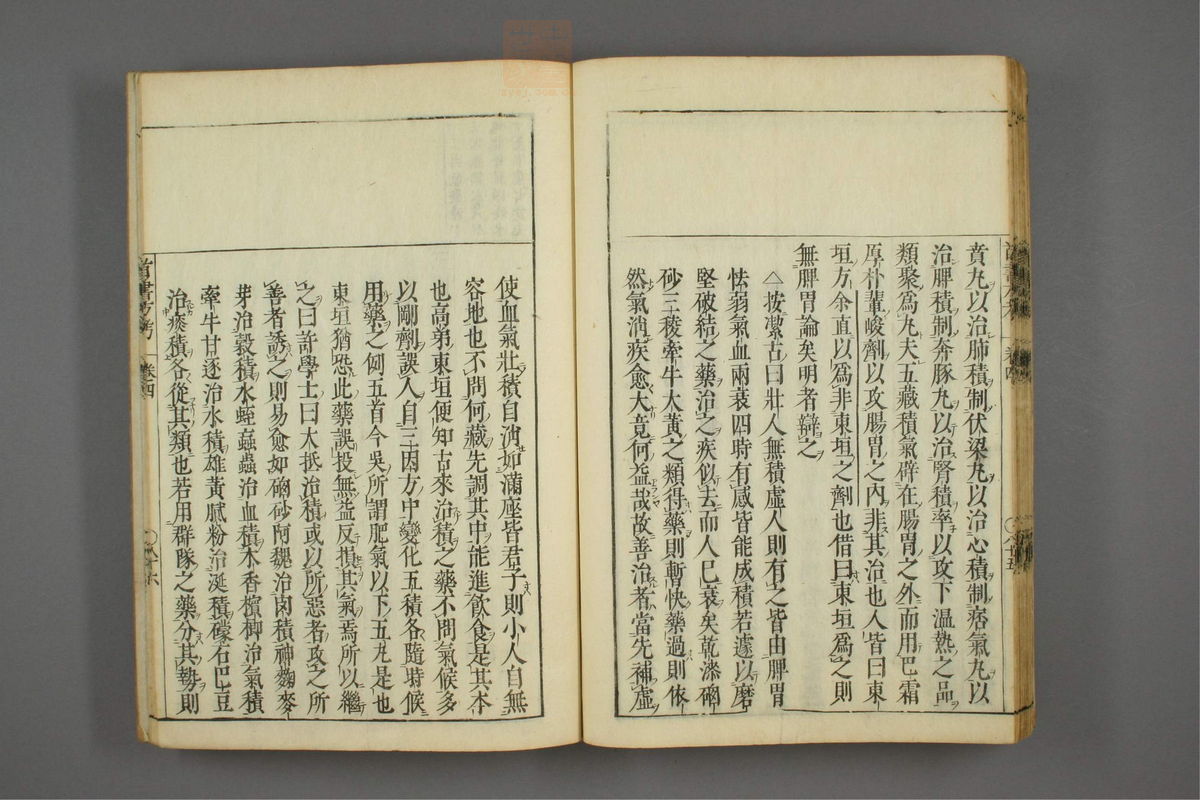 賁丸以治肺積制伏梁丸以治心積制痞氣丸以
治脾積制奔豚丸以治腎積率以攻下温熱之品
類聚爲丸夫五藏積氣癖在腸胃之外而用巴霜
厚朴輩峻劑以攻腸胃之内非其治也人皆曰東
垣方余直以爲非東垣之劑也借曰東垣爲之則
無脾胃論矣明者辯之
△按潔古曰壯人無積虚人則有之皆由脾胃
怯弱氣血兩衰四時有感皆能成積若遽以磨
堅破結之藥治之疾似去而人已衰矣乾漆硇
砂三稜牽牛大黄之類得藥則暫快藥過則依
然氣消疾愈大竟何益哉故善治者當先補虚
使血氣壯積自消如滿座皆君子則小人自無
容地也不問何藏先調其中能進飲食是其本
也高弟東垣便知古來治積之藥不問氣候多
以剛劑誤人自三因方中變化五積各隨時候
用藥之例五首今吳所謂肥氣以下五丸是也
東垣猶恐此藥誤投無益反損其氣焉所以繼
之曰許學士曰大抵治積或以所惡者攻之所
善者誘之則易愈如硇砂阿魏治肉積神麴麥
芽治穀積水蛭蝱蟲治血積木香檳榔治氣積
牽牛甘遂治水積雄黄膩粉治涎積礞石巴豆
治痰積各從其類也若用群隊之藥分其勢則
卷四